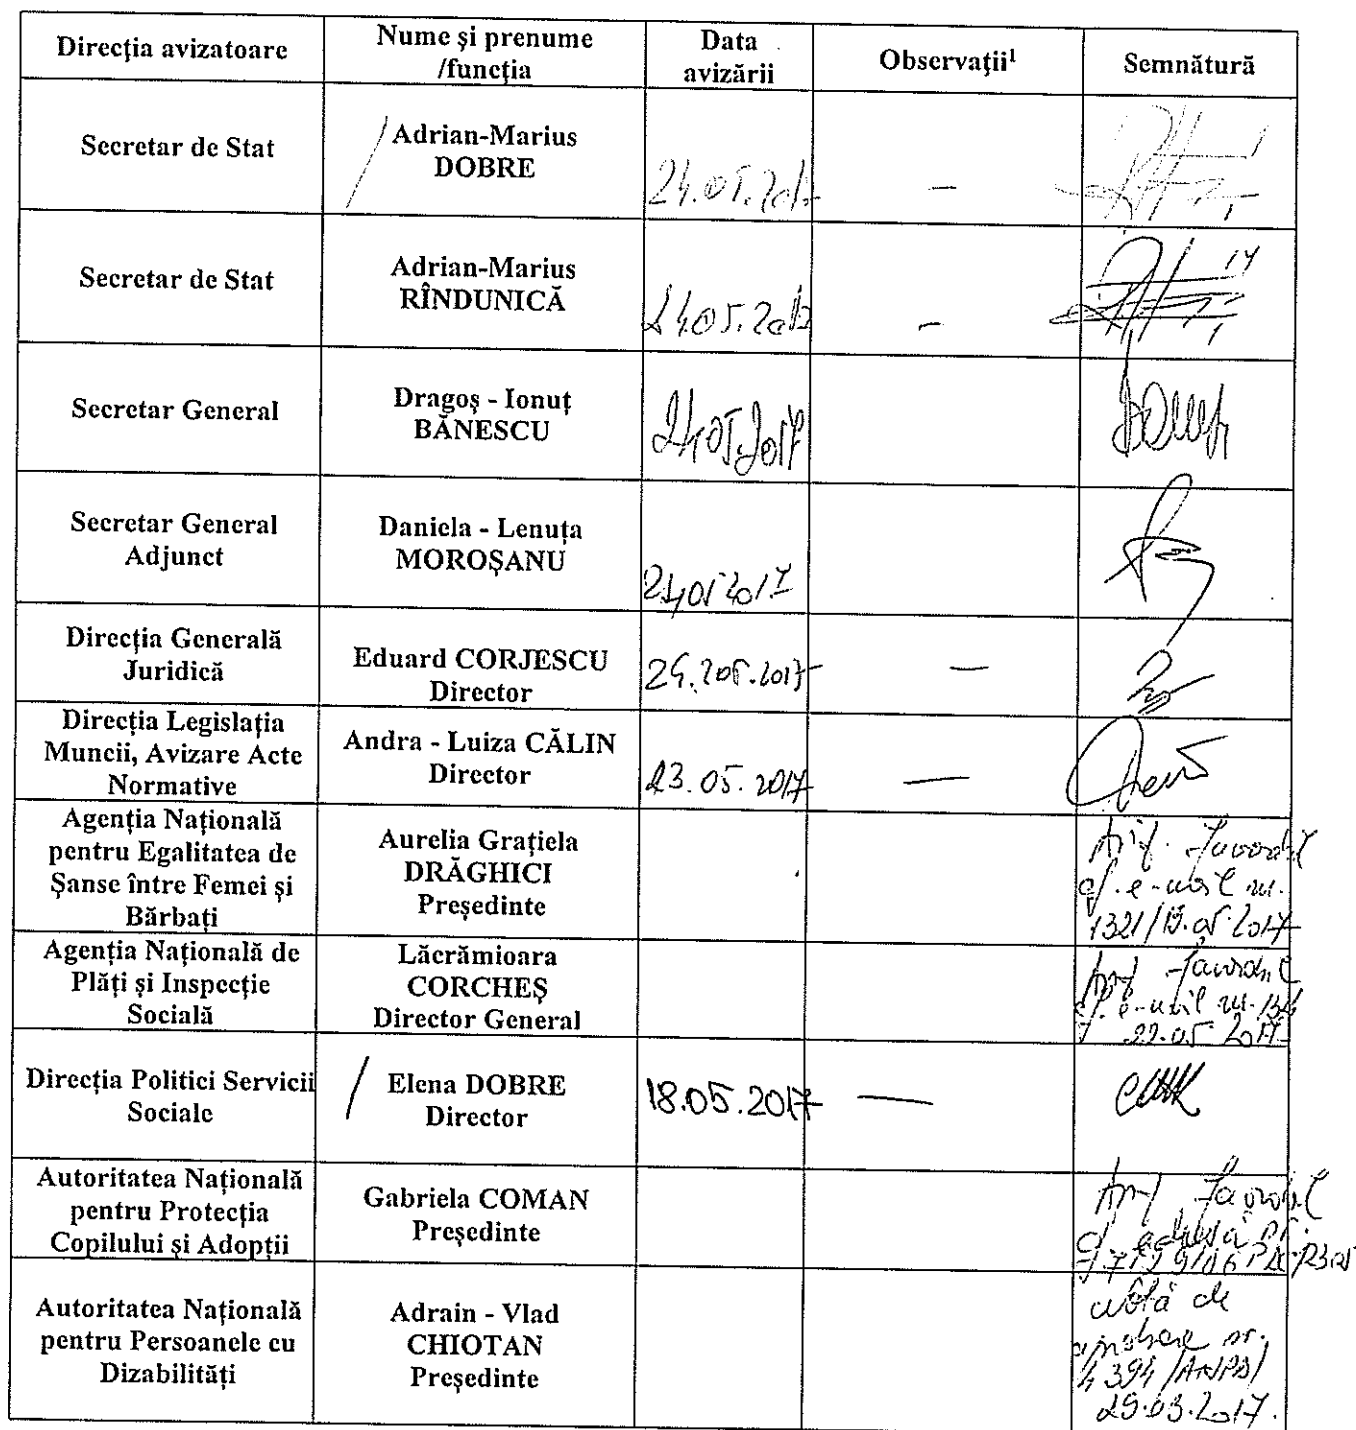 Direcția avizatoare
Nume și prenume
/funcția
Data
avizării
Observații¹
Semnătură
Secretar de Stat
Adrian-Marius
DOBRE
24.05.2017
—
Secretar de Stat
Adrian-Marius
RÎNDUNICĂ
24.05.2017
—
Secretar General
Dragoș - Ionuț
BĂNESCU
24.05.2017
Secretar General
Adjunct
Daniela - Lenuța
MOROȘANU
24.05.2017
Direcția Generală
Juridică
Eduard CORJESCU
Director
—
Direcția Legislația
Muncii, Avizare Acte
Normative
Andra - Luiza CĂLIN
Director
23.05.2017
—
Agenția Națională
pentru Egalitatea de
Șanse între Femei și
Bărbați
Aurelia Grațiela
DRĂGHICI
Președinte
favorabil
cf. e-mail nr.
Agenția Națională de
Plăți și Inspecție
Socială
Lăcrămioara
CORCHEȘ
Director General
favorabil
cf. e-mail nr.
22.05 2017
Direcția Politici Servicii
Sociale
Elena DOBRE
Director
18.05.2017
—
Autoritatea Națională
pentru Protecția
Copilului și Adopții
Gabriela COMAN
Președinte
favorabil
cf. adresa
Autoritatea Națională
pentru Persoanele cu
Dizabilități
Adrain - Vlad
CHIOTAN
Președinte
notă de
aprobare nr.
4394/ANPD/
29.03.2017.